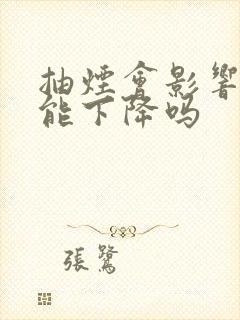 抽煙會影響
能下降吗
張鷺